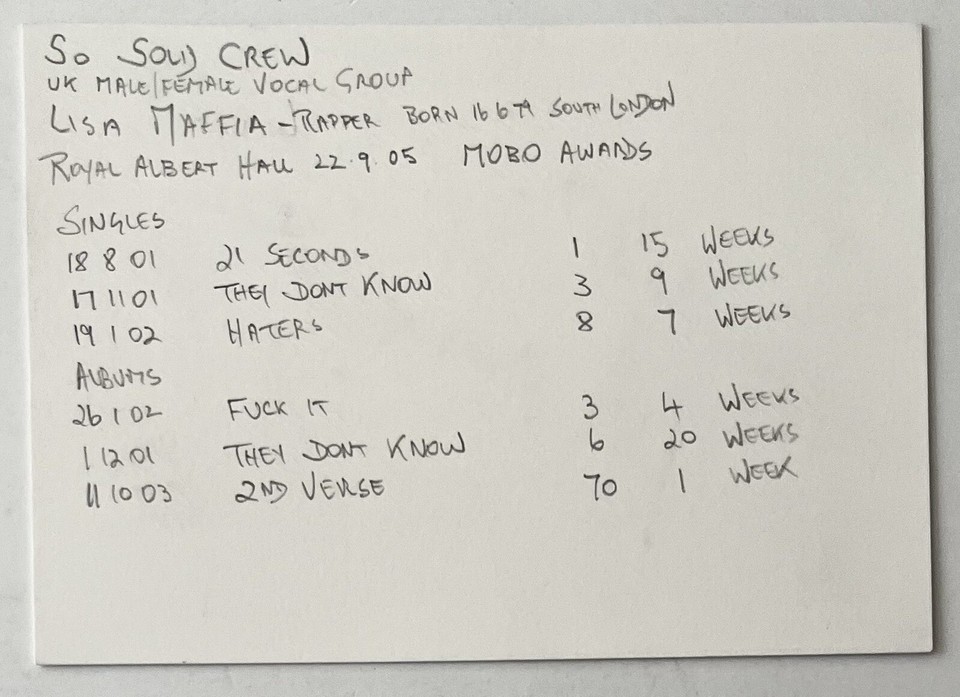 SO SOLID CREW
UK MALE/FEMALE VOCAL GROUP
LISA MAFFIA - RAPPER BORN 16 6 79 SOUTH LONDON
ROYAL ALBERT HALL 22.9.05 MOBO AWARDS
SINGLES
18 8 01 21 SECONDS 1 15 WEEKS
17 11 01 THEY DONT KNOW 3 9 WEEKS
19 1 02 HATERS 8 7 WEEKS
ALBUMS
26 1 02 FUCK IT 3 4 WEEKS
1 12 01 THEY DONT KNOW 6 20 WEEKS
11 10 03 2ND VERSE 70 1 WEEK